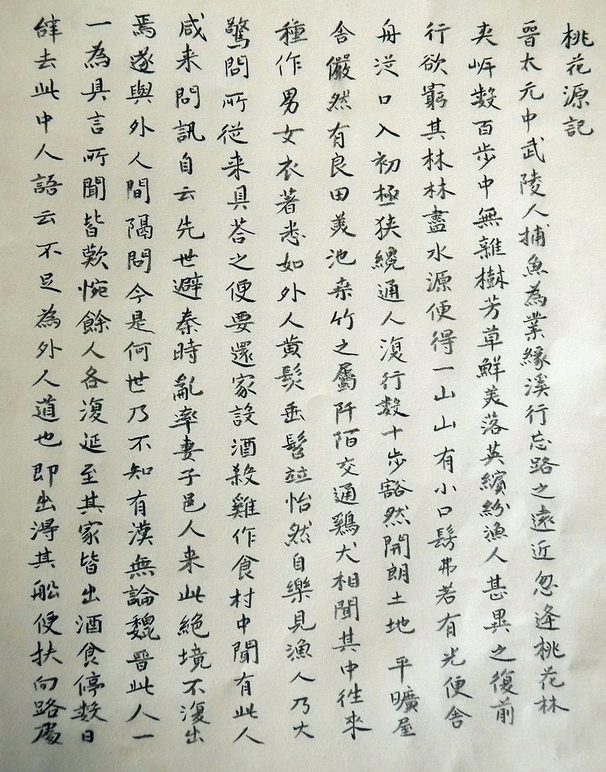 桃花源記
晉太元中武陵人捕魚為業緣溪行忘路之遠近忽逢桃花林
夾岸数百步中無雜樹芳草鮮美落英繽紛漁人甚異之復前
行欲窮其林林盡水源便得一山山有小口髣弗若有光便舎
舟從口入初極狭纔通人復行数十步豁然開朗土地平曠屋
舎儼然有良田美池桒竹之屬阡陌交通鷄犬相聞其中往來
種作男女衣著悉如外人黄髪垂髫竝怡然自樂見漁人乃大
驚問所從来具荅之便要還家設酒殺雞作食村中聞有此人
咸来問訊自云先世避秦時亂率妻子邑人来此絶境不復出
焉遂與外人間隔問今是何世乃不知有漢無論魏晉此人一
一為具言所聞皆歎惋餘人各復延至其家皆出酒食停数日
辝去此中人語云不足為外人道也即出得其舩便扶向路處